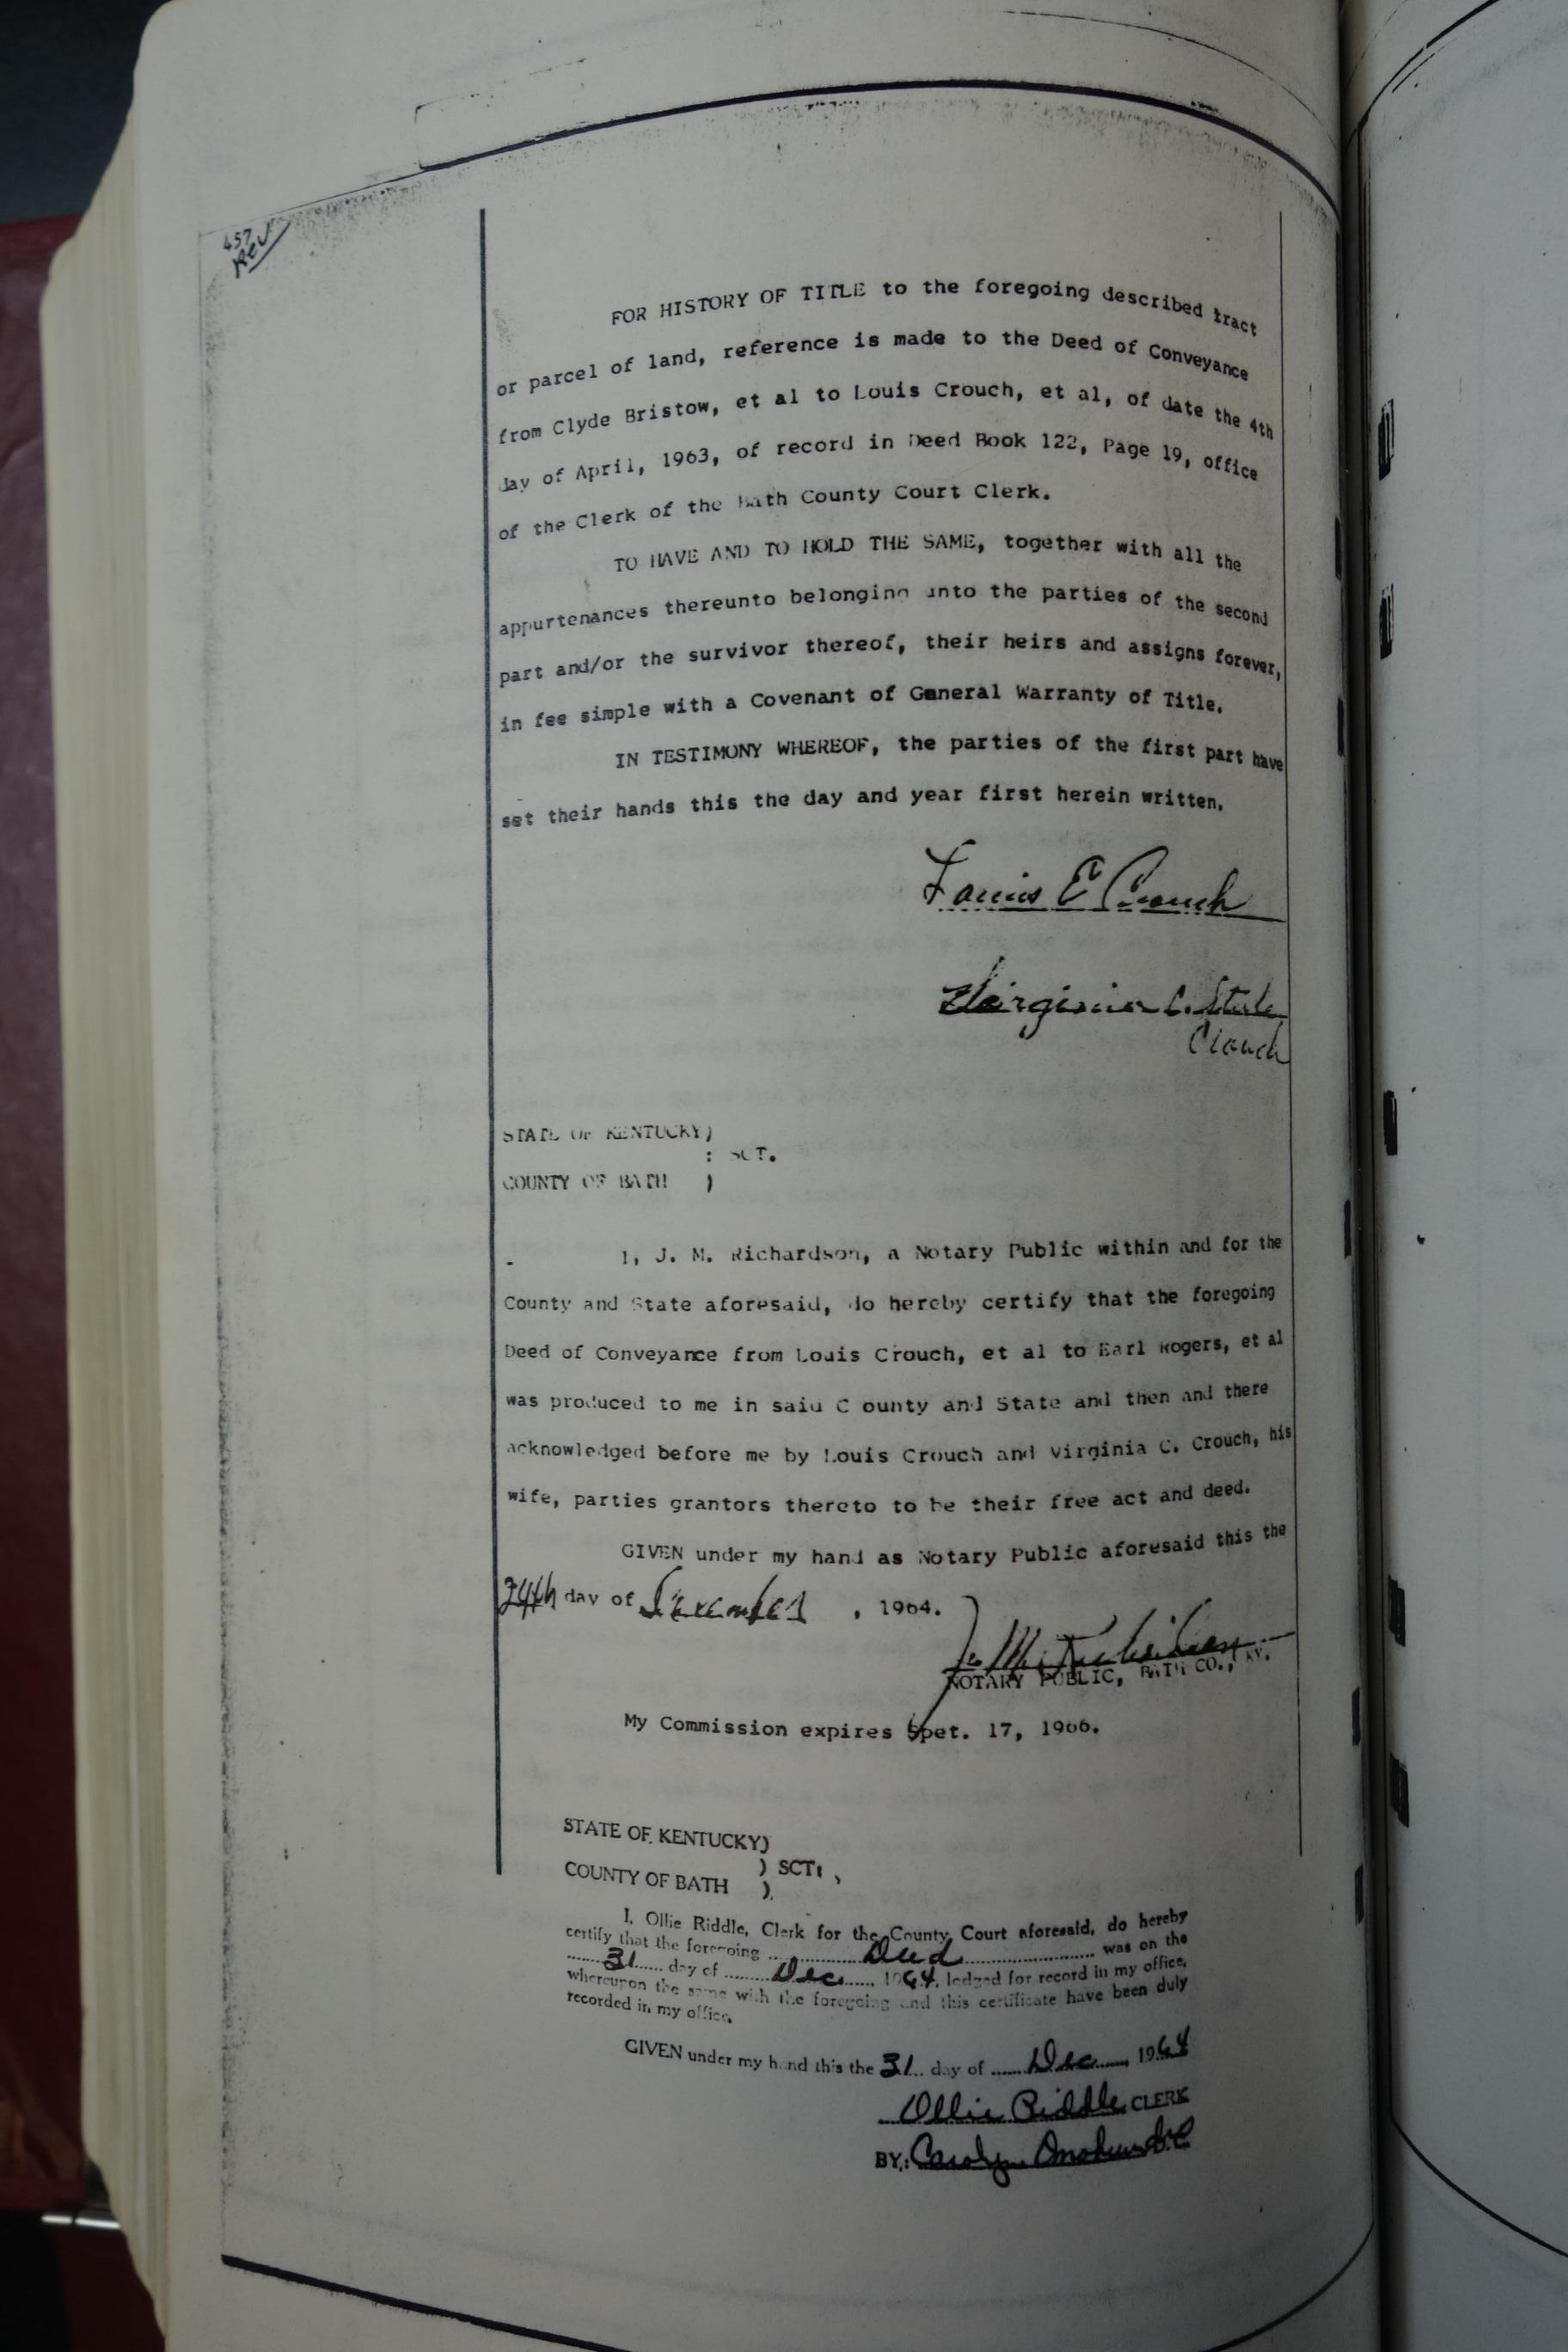 457
REV
FOR HISTORY OF TITLE to the foregoing described tract
or parcel of land, reference is made to the Deed of Conveyance
from Clyde Bristow, et al to Louis Crouch, et al, of date the 4th
day of April, 1963, of record in Deed Book 122, Page 19, office
of the Clerk of the Bath County Court Clerk.
TO HAVE AND TO HOLD THE SAME, together with all the
appurtenances thereunto belonging unto the parties of the second
part and/or the survivor thereof, their heirs and assigns forever,
in fee simple with a Covenant of General Warranty of Title.
IN TESTIMONY WHEREOF, the parties of the first part have
set their hands this the day and year first herein written.
Louis E Crouch
Virginia C. Steele
Crouch
STATE OF KENTUCKY)
: SCT.
COUNTY OF BATH )
I, J. M. Richardson, a Notary Public within and for the
County and State aforesaid, do hereby certify that the foregoing
Deed of Conveyance from Louis Crouch, et al to Earl Rogers, et al
was produced to me in said C ounty and State and then and there
acknowledged before me by Louis Crouch and Virginia C. Crouch, his
wife, parties grantors thereto to be their free act and deed.
GIVEN under my hand as Notary Public aforesaid this the
24th day of December , 1964.
J. M. Richardson
NOTARY PUBLIC, BATH CO., KY.
My Commission expires Spet. 17, 1966.
STATE OF KENTUCKY)
) SCT:
COUNTY OF BATH )
I, Ollie Riddle, Clerk for the County Court aforesaid, do hereby
certify that the foregoing Deed was on the
31 day of Dec 1964, lodged for record in my office,
whereupon the same with the foregoing and this certificate have been duly
recorded in my office.
GIVEN under my hand this the 31 day of Dec, 1964
Ollie Riddle CLERK
BY: Carolyn D.C.